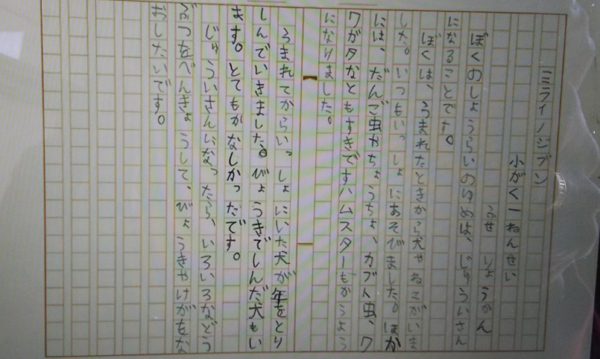 ミライノジブン
小がく一ねんせい
うせ しょうかん
ぼくのしょうらいのゆめは、じゅういさん
になることです。
ぼくは、うまれたときから犬やねこがいま
した。いつもいっしょにあそびました。ほか
には、だんご虫やちょうちょ、カブト虫、ク
ワガタなどもすきですハムスターもかうよう
になりました。
うまれてからいっしょにいた犬が年をとり
しんでいきました。びょうきでしんだ犬もい
ます。とてもかなしかったです。
じゅういさんになったら、いろいろなどう
ぶつをべんきょうして、びょうきやけがをな
おしたいです。